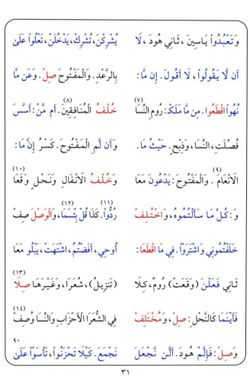 و تَعْبُدُوا يَاسِينَ، ثَانِي هُودَ، لَا
يُشْرِكْنَ، تُشْرِكْ، يَدْخُلْنَ، تَعْلُوا عَلَى
أَن لَّا يَقُولُوا، لَا أَقُولَ. إِن مَّا:
بِالرَّعْدِ. وَالْمَفْتُوحَ صِلْ. وَعَن مَّا
نُهُوا اقْطَعُوا. مِن مَّا مَلَكْ: رُومِ النِّسَا (٧)
خُلْفُ الْمُنَافِقِينَ. أَم مَّنْ: أَسَّسَ (٨)
فُصِّلَتْ، النِّسَا، وَذِبْحٍ. حَيْثُ مَا.
وَأَن لَّمِ الْمَفْتُوحَ. كَسْرُ إِنَّ مَا:
الَانْعَامَ (٩). وَالْمَفْتُوحَ: يَدْعُونَ مَعَا
وَخُلْفُ الَانْفَالِ وَنَحْلٍ وَقَعَا (١٠)
وَ: كُلِّ مَا سَأَلْتُمُوهُ، وَاخْتُلِفْ
رُدُّوا (١١). كَذَا قُلْ بِئْسَمَا، وَالْوَصْلَ صِفْ (١٢)
خَلَفْتُمُونِي وَاشْتَرَوْا. فِي مَا اقْطَعَا:
أُوحِي، أَفَضْتُمُ، اشْتَهَتْ، يَبْلُو مَعَا
ثَانِي فَعَلْنَ (وَقَعَتْ) رُومٌ، كِلَا
(تَنْزِيلُ)، شُعَرَا، وَغَيْرَهَا صِلَا (١٣)
فَأَيْنَمَا كَالنَّحْلِ: صِلْ. وَمُخْتَلِفْ
فِي الشُّعَرَا الْأَحْزَابِ وَالنِّسَا وُصِفْ (١٤)
وَصِلْ: فَإِلَّمْ هُودَ. أَلَّن نَّجْعَلَ
نَجْمَعَ. كَيْلَا تَحْزَنُوا، تَأْسَوْا عَلَى ٩٠
٣١